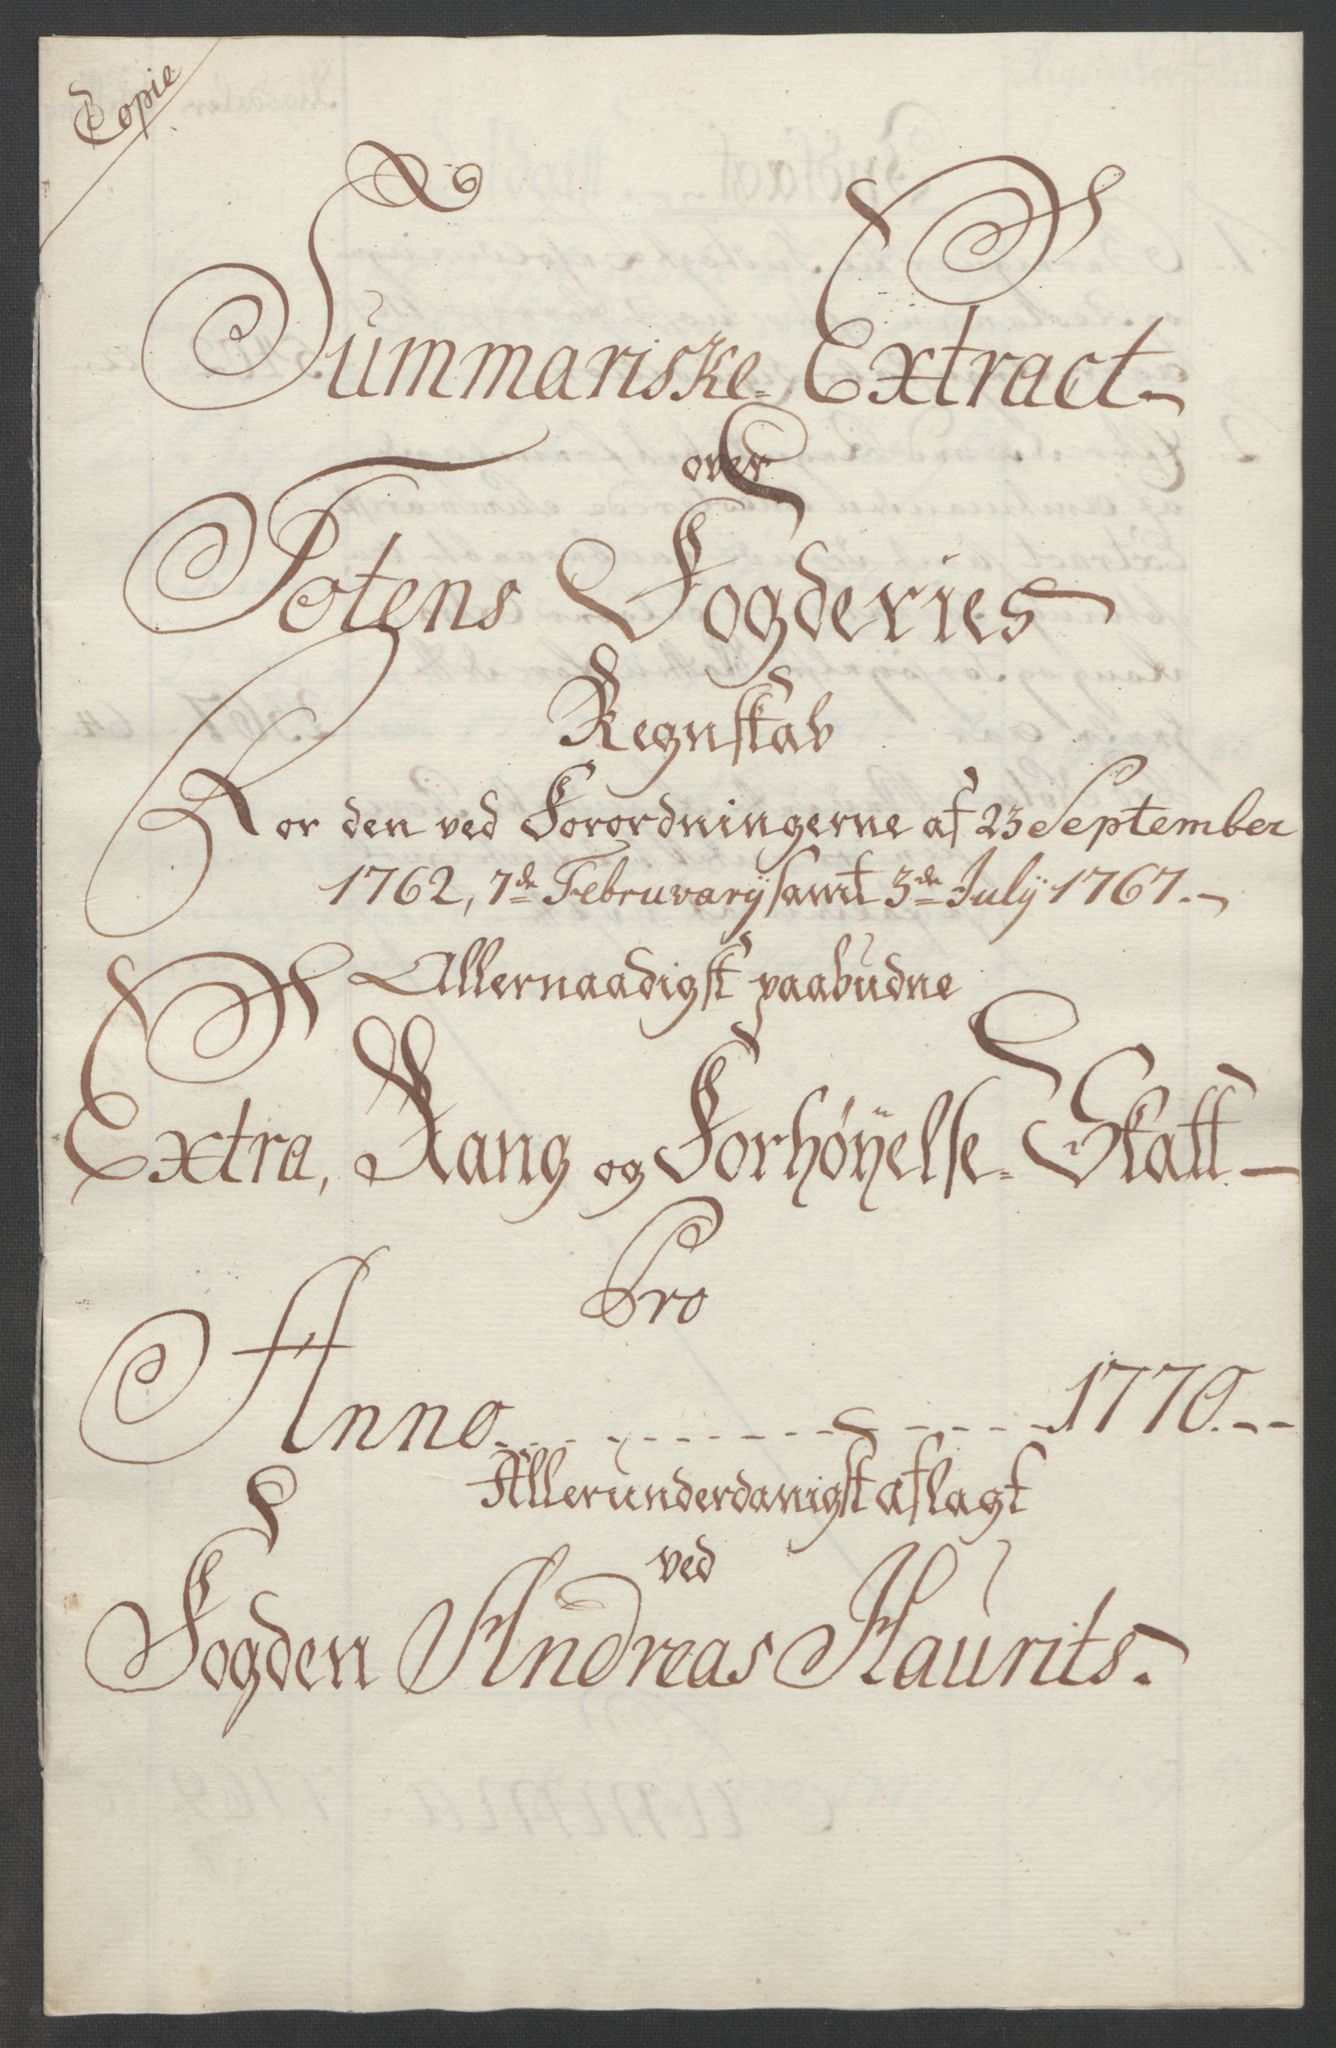 Copie
Summariske Extract
over
Totens Fogderies
Regnskab
For den ved Forordningerne af 23 September
1762, 7de Februarij samt 3de Julij 1767.
Allernaadigst paabudne
Extra, Rang og Forhøyelse-Skatt
Pro
Anno 1770.
Allerunderdanigst aflagt
ved
Fogden Andreas Haurits.